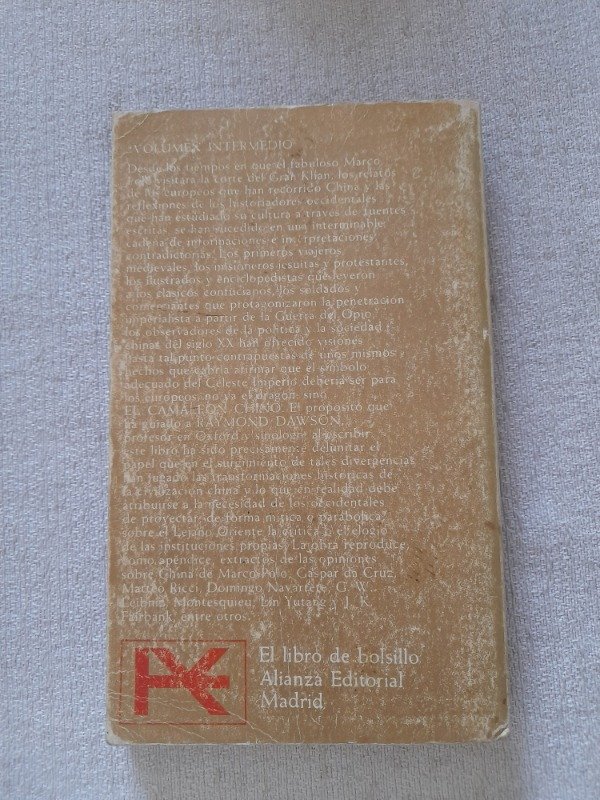 *VOLUMEN INTERMEDIO
Desde los tiempos en que el fabuloso Marco
Polo visitara la corte del Gran Khan, los relatos
de los europeos que han recorrido China y las
reflexiones de los historiadores occidentales
que han estudiado su cultura a través de fuentes
escritas, se han sucedido en una interminable
cadena de informaciones e interpretaciones
contradictorias. Los primeros viajeros
medievales, los misioneros jesuitas y protestantes,
los ilustrados y enciclopedistas que leyeron
a los clásicos confucianos, los soldados y
comerciantes que protagonizaron la penetración
imperialista a partir de la Guerra del Opio,
los observadores de la política y la sociedad
chinas del siglo XX han ofrecido visiones
hasta tal punto contrapuestas de unos mismos
hechos que cabría afirmar que el símbolo
adecuado del Celeste Imperio debería ser para
los europeos, no ya el dragón, sino
EL CAMALEON CHINO. El propósito que
ha guiado a RAYMOND DAWSON,
profesor en Oxford y sinólogo, al escribir
este libro ha sido precisamente delimitar el
papel que en el surgimiento de tales divergencias
han jugado las transformaciones históricas de
la civilización china y lo que en realidad debe
atribuirse a la necesidad de los occidentales
de proyectar, de forma mítica o parabólica,
sobre el Lejano Oriente la crítica o el elogio
de las instituciones propias. La obra reproduce,
como apéndice, extractos de las opiniones
sobre China de Marco Polo, Gaspar da Cruz,
Matteo Ricci, Domingo Navarrete, G. W.
Leibniz, Montesquieu, Lin Yutang y J. K.
Fairbank, entre otros.
El libro de bolsillo
Alianza Editorial
Madrid